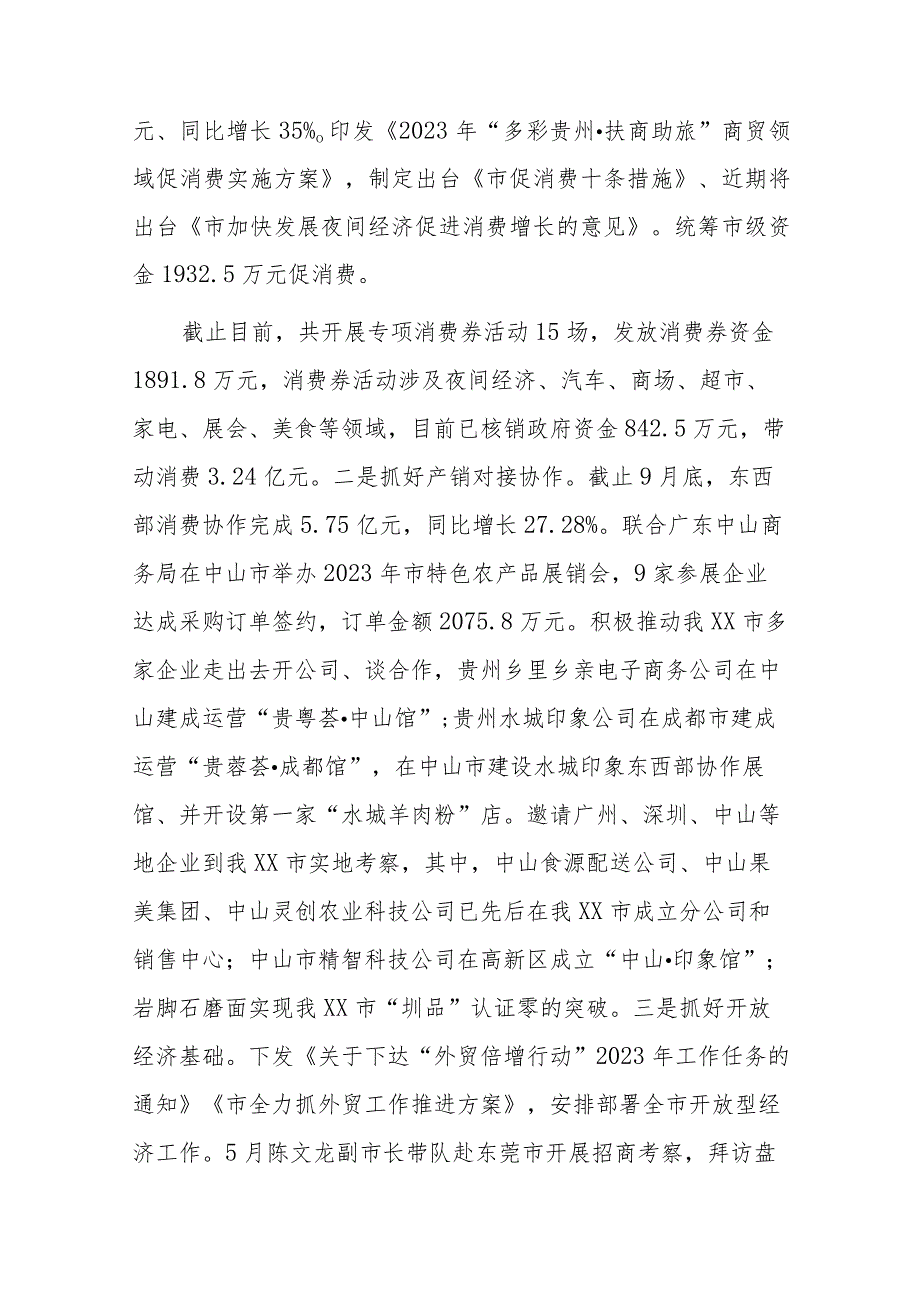 元、同比增长35%。印发《2023年“多彩贵州•扶商助旅”商贸领
域促消费实施方案》，制定出台《市促消费十条措施》、近期将
出台《市加快发展夜间经济促进消费增长的意见》。统筹市级资
金1932.5万元促消费。
截止目前，共开展专项消费券活动15场，发放消费券资金
1891.8万元，消费券活动涉及夜间经济、汽车、商场、超市、
家电、展会、美食等领域，目前已核销政府资金842.5万元，带
动消费3.24亿元。二是抓好产销对接协作。截止9月底，东西
部消费协作完成5.75亿元，同比增长27.28%。联合广东中山商
务局在中山市举办2023年市特色农产品展销会，9家参展企业
达成采购订单签约，订单金额2075.8万元。积极推动我XX市多
家企业走出去开公司、谈合作，贵州乡里乡亲电子商务公司在中
山建成运营“贵粤荟•中山馆”;贵州水城印象公司在成都市建成
运营“贵蓉荟•成都馆”，在中山市建设水城印象东西部协作展
馆、并开设第一家“水城羊肉粉”店。邀请广州、深圳、中山等
地企业到我XX市实地考察，其中，中山食源配送公司、中山果
美集团、中山灵创农业科技公司已先后在我XX市成立分公司和
销售中心；中山市精智科技公司在高新区成立“中山•印象馆”；
岩脚石磨面实现我XX市“圳品”认证零的突破。三是抓好开放
经济基础。下发《关于下达“外贸倍增行动”2023年工作任务的
通知》《市全力抓外贸工作推进方案》，安排部署全市开放型经
济工作。5月陈文龙副市长带队赴东莞市开展招商考察，拜访盘